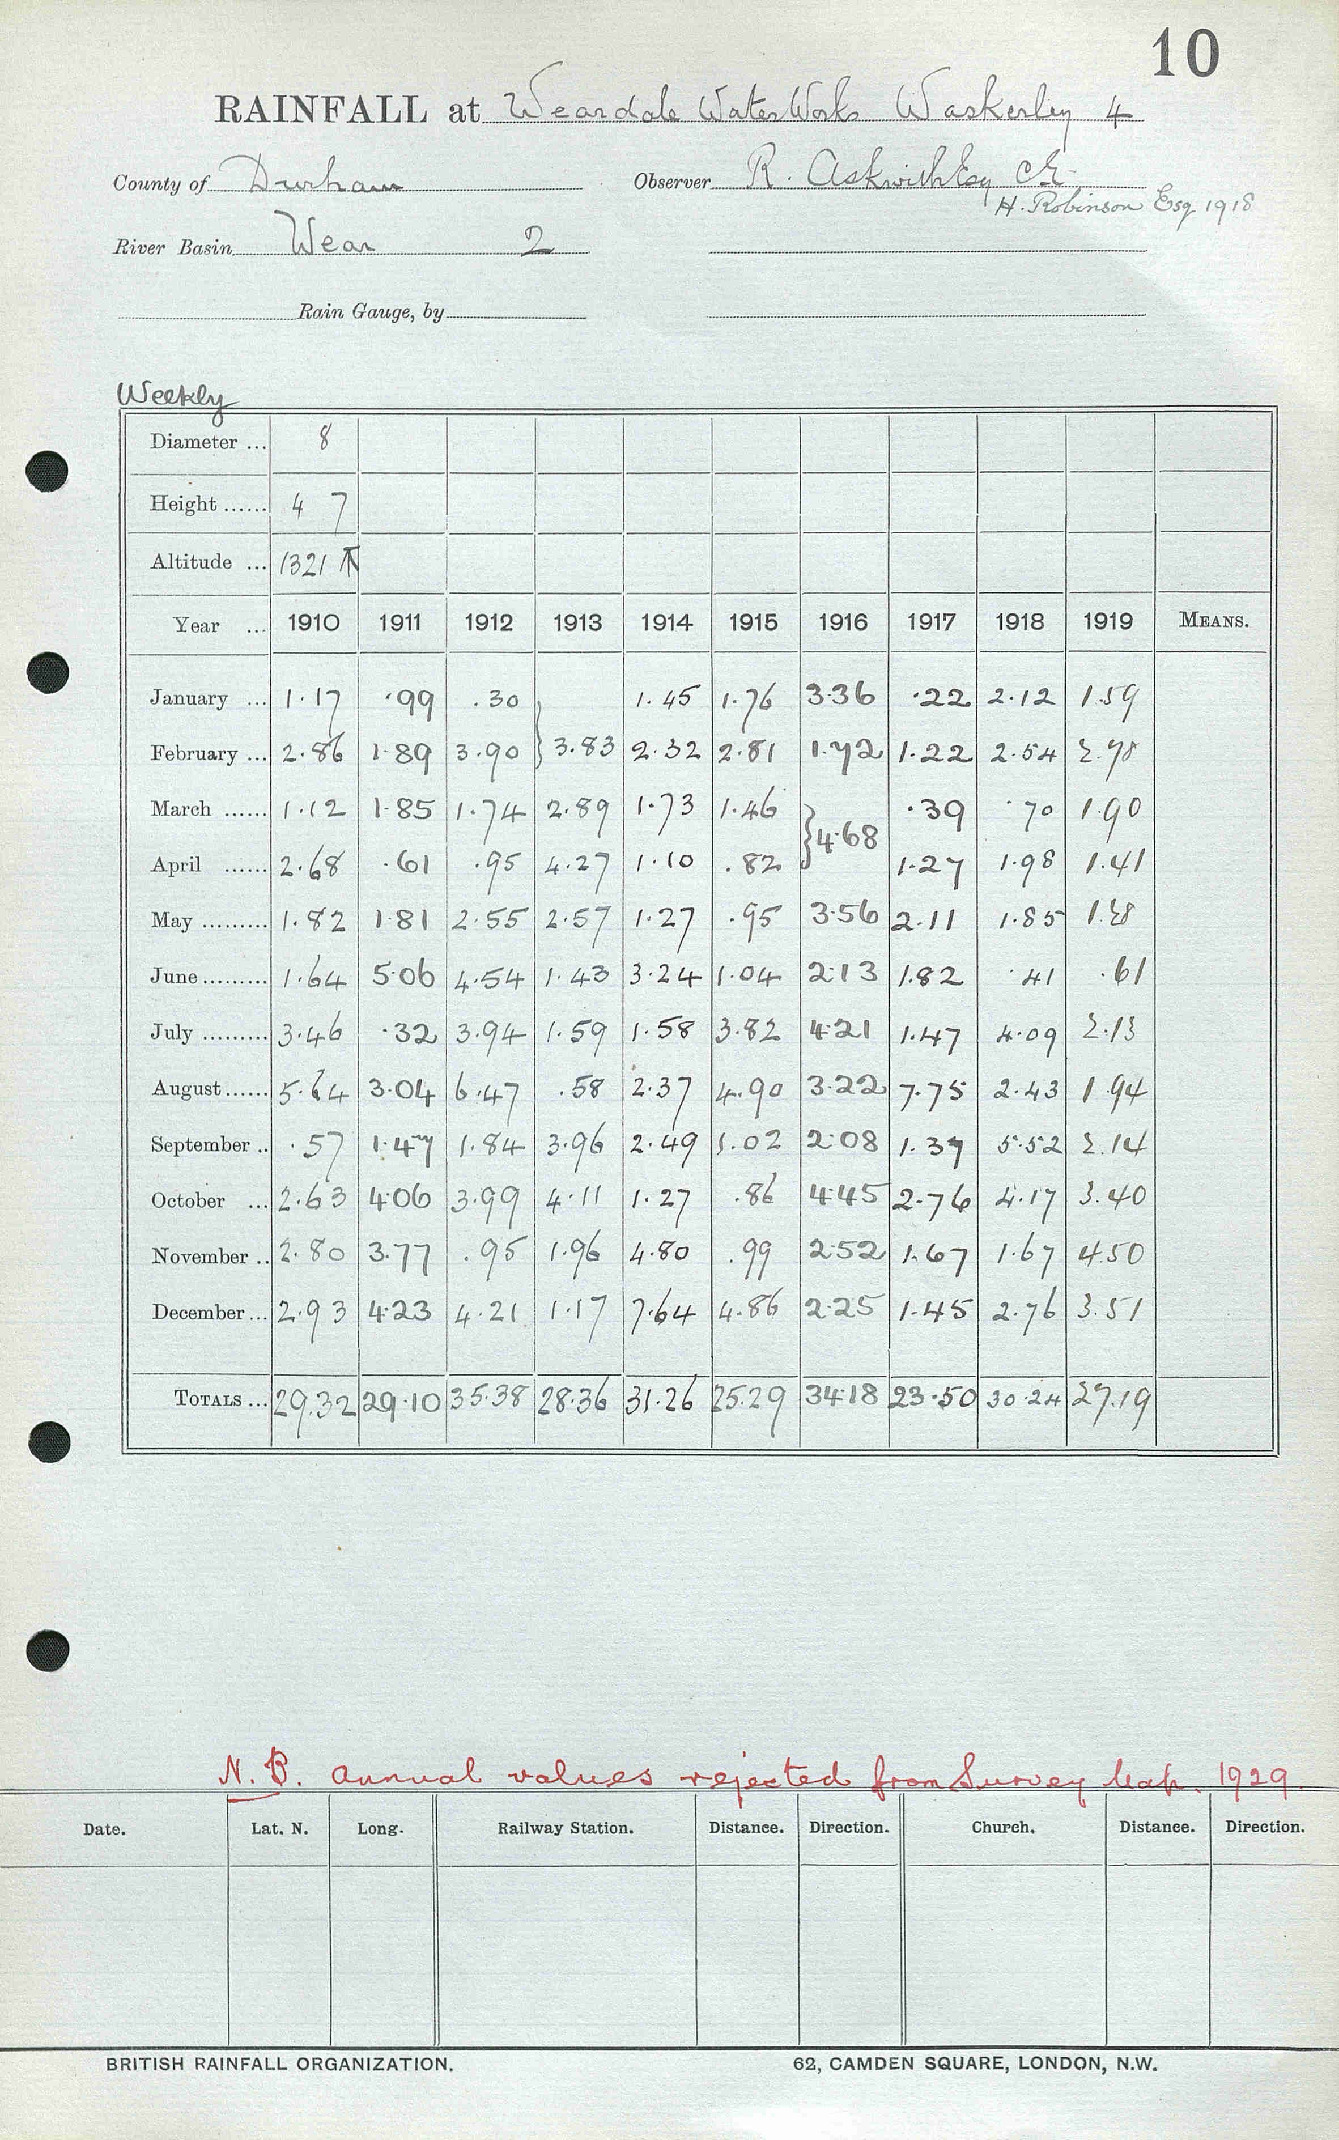 10
RAINFALL at Weardale Water Works Waskerley 4
County of Durham Observer R. Askwith Esq CE.
H. Robinson Esq 1918
River Basin Wear 2
Rain Gauge, by
Weekly
Diameter ... 8
Height ...... 4 7
Altitude ... 1321
Year ... 1910 1911 1912 1913 1914 1915 1916 1917 1918 1919 MEANS.
January ... 1.17 .99 .30 1.45 1.76 3.36 .22 2.12 1.59
February ... 2.86 1.89 3.90 } 3.83 2.32 2.81 1.72 1.22 2.54 2.78
March ...... 1.12 1.85 1.74 2.89 1.73 1.46 } 4.68 .39 .70 1.90
April ...... 2.68 .61 .95 4.27 1.10 .82 1.27 1.98 1.41
May ......... 1.82 1.81 2.55 2.57 1.27 .95 3.56 2.11 1.85 1.28
June ......... 1.64 5.06 4.54 1.43 3.24 1.04 2.13 1.82 .41 .61
July ......... 3.46 .32 3.94 1.59 1.58 3.82 4.21 1.47 4.09 2.13
August ...... 5.64 3.04 6.47 .58 2.37 4.90 3.22 7.75 2.43 1.94
September .. .57 1.47 1.84 3.96 2.49 1.02 2.08 1.37 5.52 2.14
October ... 2.63 4.06 3.99 4.11 1.27 .86 4.45 2.76 4.17 3.40
November .. 2.80 3.77 .95 1.96 4.80 .99 2.52 1.67 1.67 4.50
December ... 2.93 4.23 4.21 1.17 7.64 4.86 2.25 1.45 2.76 3.51
TOTALS ... 29.32 29.10 35.38 28.36 31.26 25.29 34.18 23.50 30.24 27.19
N.B. Annual values rejected from Survey Map. 1929
Date. Lat. N. Long. Railway Station. Distance. Direction. Church. Distance. Direction.
BRITISH RAINFALL ORGANIZATION. 62, CAMDEN SQUARE, LONDON, N.W.